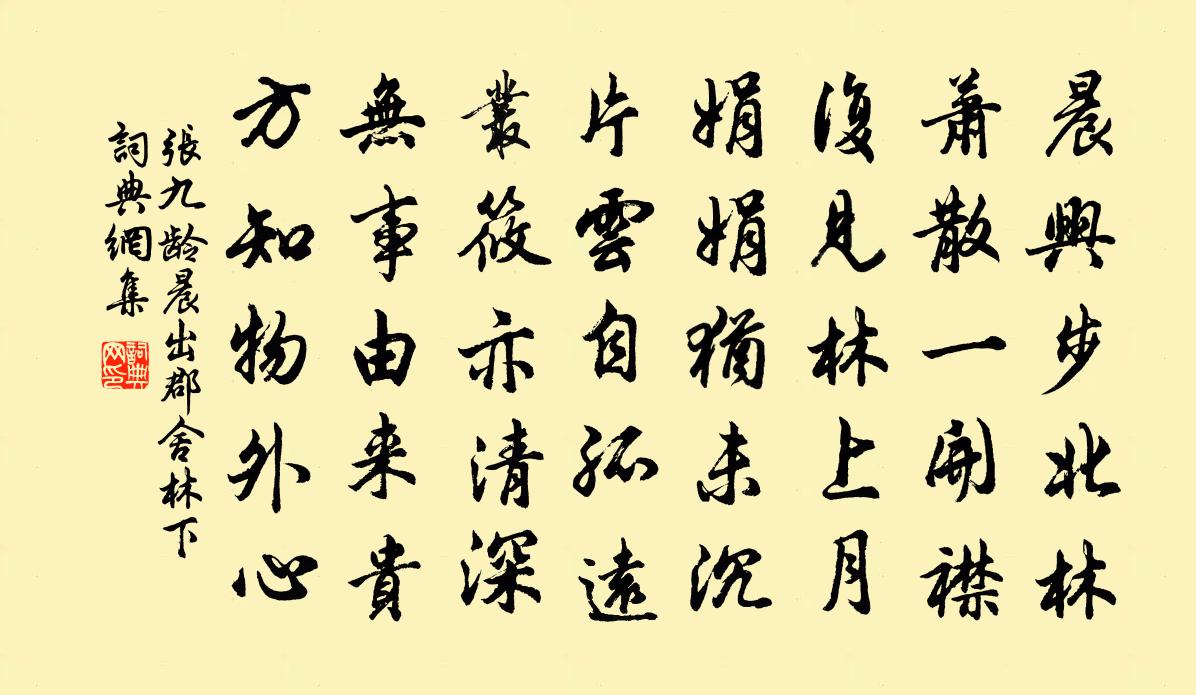 晨興步北林
蕭散一開襟
復見林上月
娟娟猶未沉
片雲自孤遠
叢筱亦清深
無事由来貴
方知物外心
張九龄晨出郡舍林下
詞典網集
詞典網印